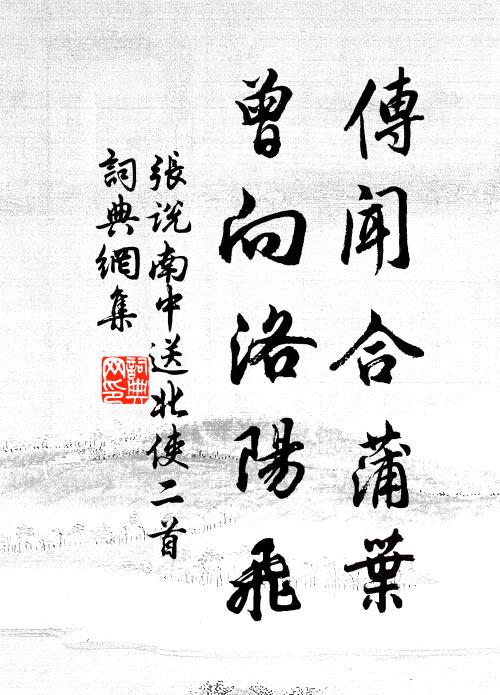 傳聞合蒲葉
曾向洛陽飛
張說南中送北使二首
詞典網集
詞典網印